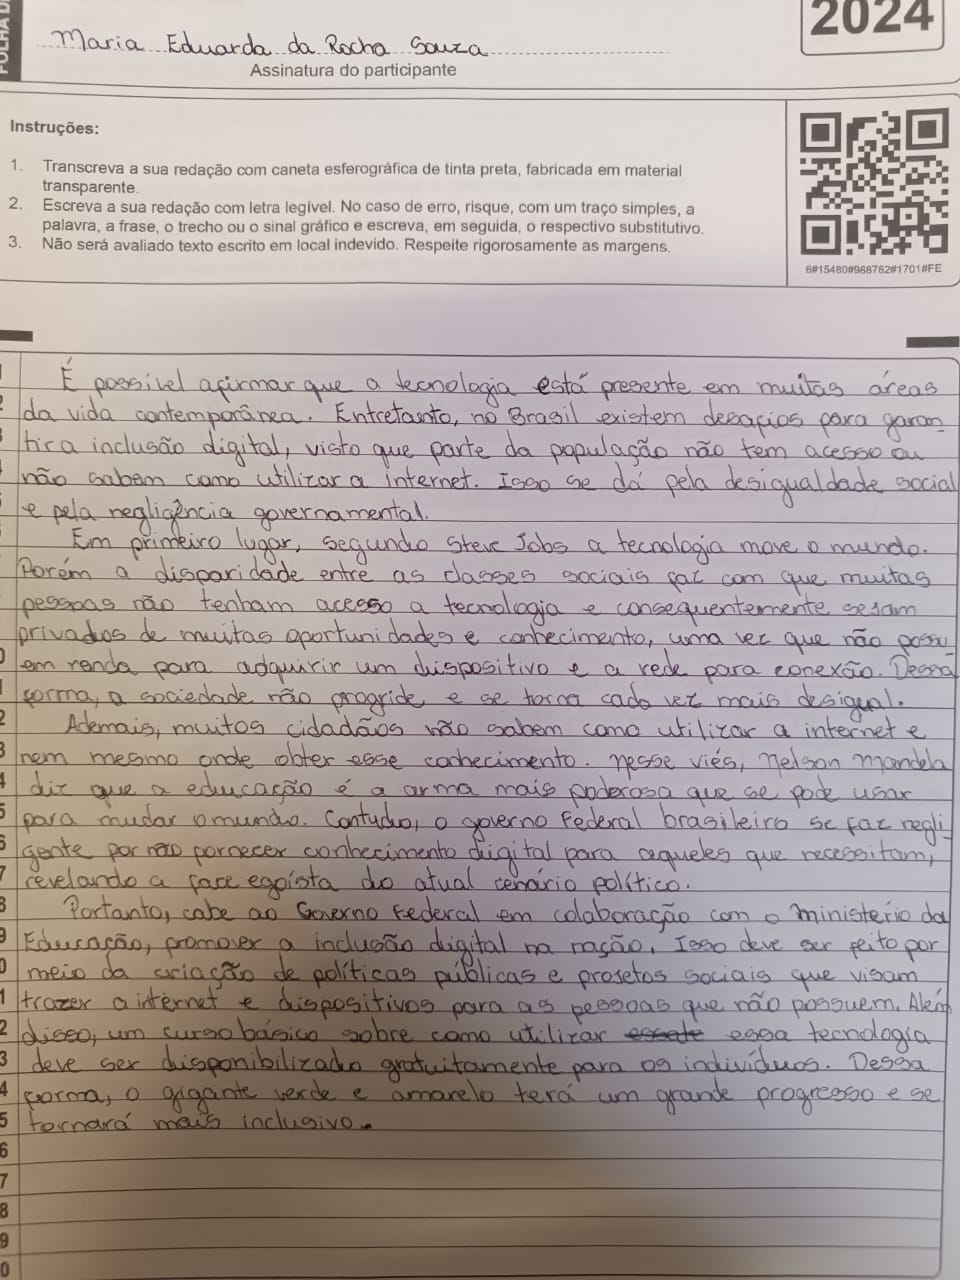 FOLHA D
Maria Eduarda da Rocha Souza
Assinatura do participante
2024
Instruções:
1. Transcreva a sua redação com caneta esferográfica de tinta preta, fabricada em material
transparente.
2. Escreva a sua redação com letra legível. No caso de erro, risque, com um traço simples, a
palavra, a frase, o trecho ou o sinal gráfico e escreva, em seguida, o respectivo substitutivo.
3. Não será avaliado texto escrito em local indevido. Respeite rigorosamente as margens.
6#15480#988762#1701#FE
1 É possível afirmar que a tecnologia está presente em muitas áreas
2 da vida contemporânea. Entretanto, no Brasil existem desafios para garan
3 tir a inclusão digital, visto que parte da população não tem acesso ou
4 não sabem como utilizar a internet. Isso se dá pela desigualdade social
5 e pela negligência governamental.
6 Em primeiro lugar, segundo Steve Jobs a tecnologia move o mundo.
Porém a disparidade entre as classes sociais faz com que muitas
pessoas não tenham acesso a tecnologia e consequentemente sejam
privados de muitas oportunidades e conhecimento, uma vez que não possu
0 em renda para adquirir um dispositivo e a rede para conexão. Dessa
1 forma, a sociedade não progride e se torna cada vez mais desigual.
2 Ademais, muitos cidadãos não sabem como utilizar a internet e
3 nem mesmo onde obter esse conhecimento. Nesse viés, Nelson Mandela
4 diz que a educação é a arma mais poderosa que se pode usar
5 para mudar o mundo. Contudo, o governo Federal brasileiro se faz negli
6 gente por não fornecer conhecimento digital para aqueles que necessitam,
7 revelando a face egoísta do atual cenário político.
8 Portanto, cabe ao Governo Federal em colaboração com o ministério da
9 Educação, promover a inclusão digital na nação. Isso deve ser feito por
0 meio da criação de políticas públicas e projetos sociais que visam
1 trazer a internet e dispositivos para as pessoas que não possuem. Além
2 disso, um curso básico sobre como utilizar essa tecnologia
3 deve ser disponibilizado gratuitamente para os indivíduos. Dessa
4 forma, o gigante verde e amarelo terá um grande progresso e se
5 tornará mais inclusivo.
6
7
8
9
0